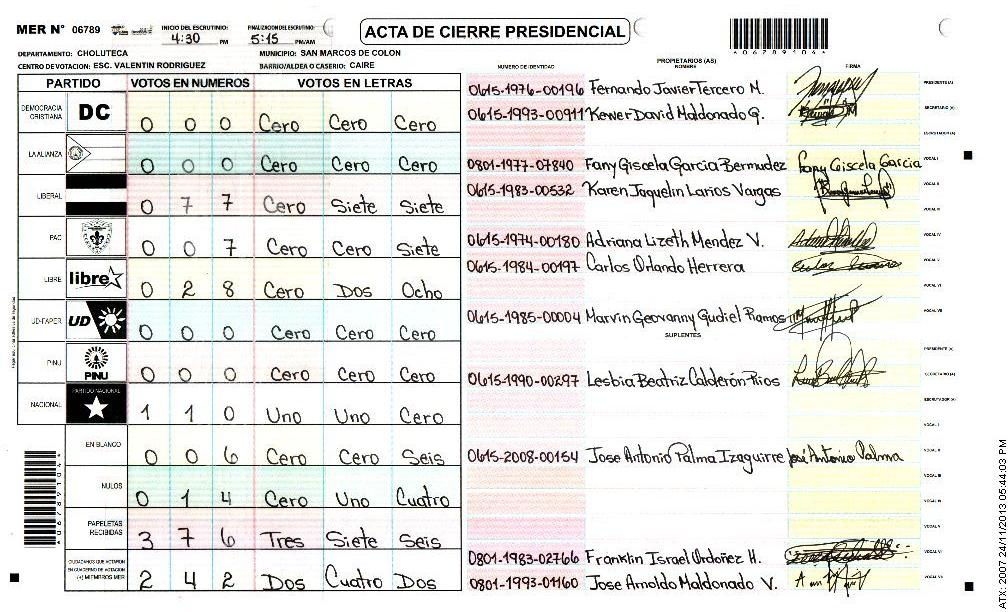 MER N° 06789
INICIO DEL ESCRUTINIO: 4:30 PM
FINALIZACION DEL ESCRUTINIO: 5:15 PM/AM
ACTA DE CIERRE PRESIDENCIAL
*067891064*
DEPARTAMENTO: CHOLUTECA
MUNICIPIO: SAN MARCOS DE COLON
CENTRO DE VOTACION: ESC. VALENTIN RODRIGUEZ
BARRIO/ALDEA O CASERIO: CAIRE
PARTIDO VOTOS EN NUMEROS VOTOS EN LETRAS
DEMOCRACIA CRISTIANA DC 0 0 0 Cero Cero Cero
LA ALIANZA 0 0 0 Cero Cero Cero
LIBERAL 0 7 7 Cero Siete Siete
PAC 0 0 7 Cero Cero Siete
LIBRE libre 0 2 8 Cero Dos Ocho
UD-FAPER UD 0 0 0 Cero Cero Cero
PINU PINU 0 0 0 Cero Cero Cero
NACIONAL PARTIDO NACIONAL 1 1 0 Uno Uno Cero
EN BLANCO 0 0 6 Cero Cero Seis
NULOS 0 1 4 Cero Uno Cuatro
PAPELETAS RECIBIDAS 3 7 6 Tres Siete Seis
CIUDADANOS QUE VOTARON EN CUADERNO DE VOTACION (+) MIEMBROS MER 2 4 2 Dos Cuatro Dos
PROPIETARIOS (AS)
NUMERO DE IDENTIDAD NOMBRE FIRMA
0615-1976-00196 Fernando Javier Tercero M. PRESIDENTE (A)
0615-1993-00911 Kewer David Maldonado G. SECRETARIO (A)
ESCRUTADOR (A)
0801-1977-07840 Fany Giscela Garcia Bermudez Fany Giscela Garcia VOCAL I
0615-1983-00532 Karen Jaquelin Larios Vargas VOCAL II
VOCAL III
0615-1974-00180 Adriana Lizeth Mendez V. VOCAL IV
0615-1984-00197 Carlos Orlando Herrera VOCAL V
VOCAL VI
0615-1985-00004 Marvin Geovanny Gudiel Ramos VOCAL VII
SUPLENTES
PRESIDENTE (A)
0615-1990-00297 Lesbia Beatriz Calderón Rios SECRETARIO (A)
ESCRUTADOR (A)
VOCAL I
0615-2008-00154 Jose Antonio Palma Izaguirre José Antonio Palma VOCAL II
VOCAL III
VOCAL IV
VOCAL V
0801-1983-02766 Franklin Israel Ordoñez H. VOCAL VI
0801-1993-01160 Jose Arnoldo Maldonado V. VOCAL VII
*067891064*
ATX 2007 24/11/2013 05:44:03 PM